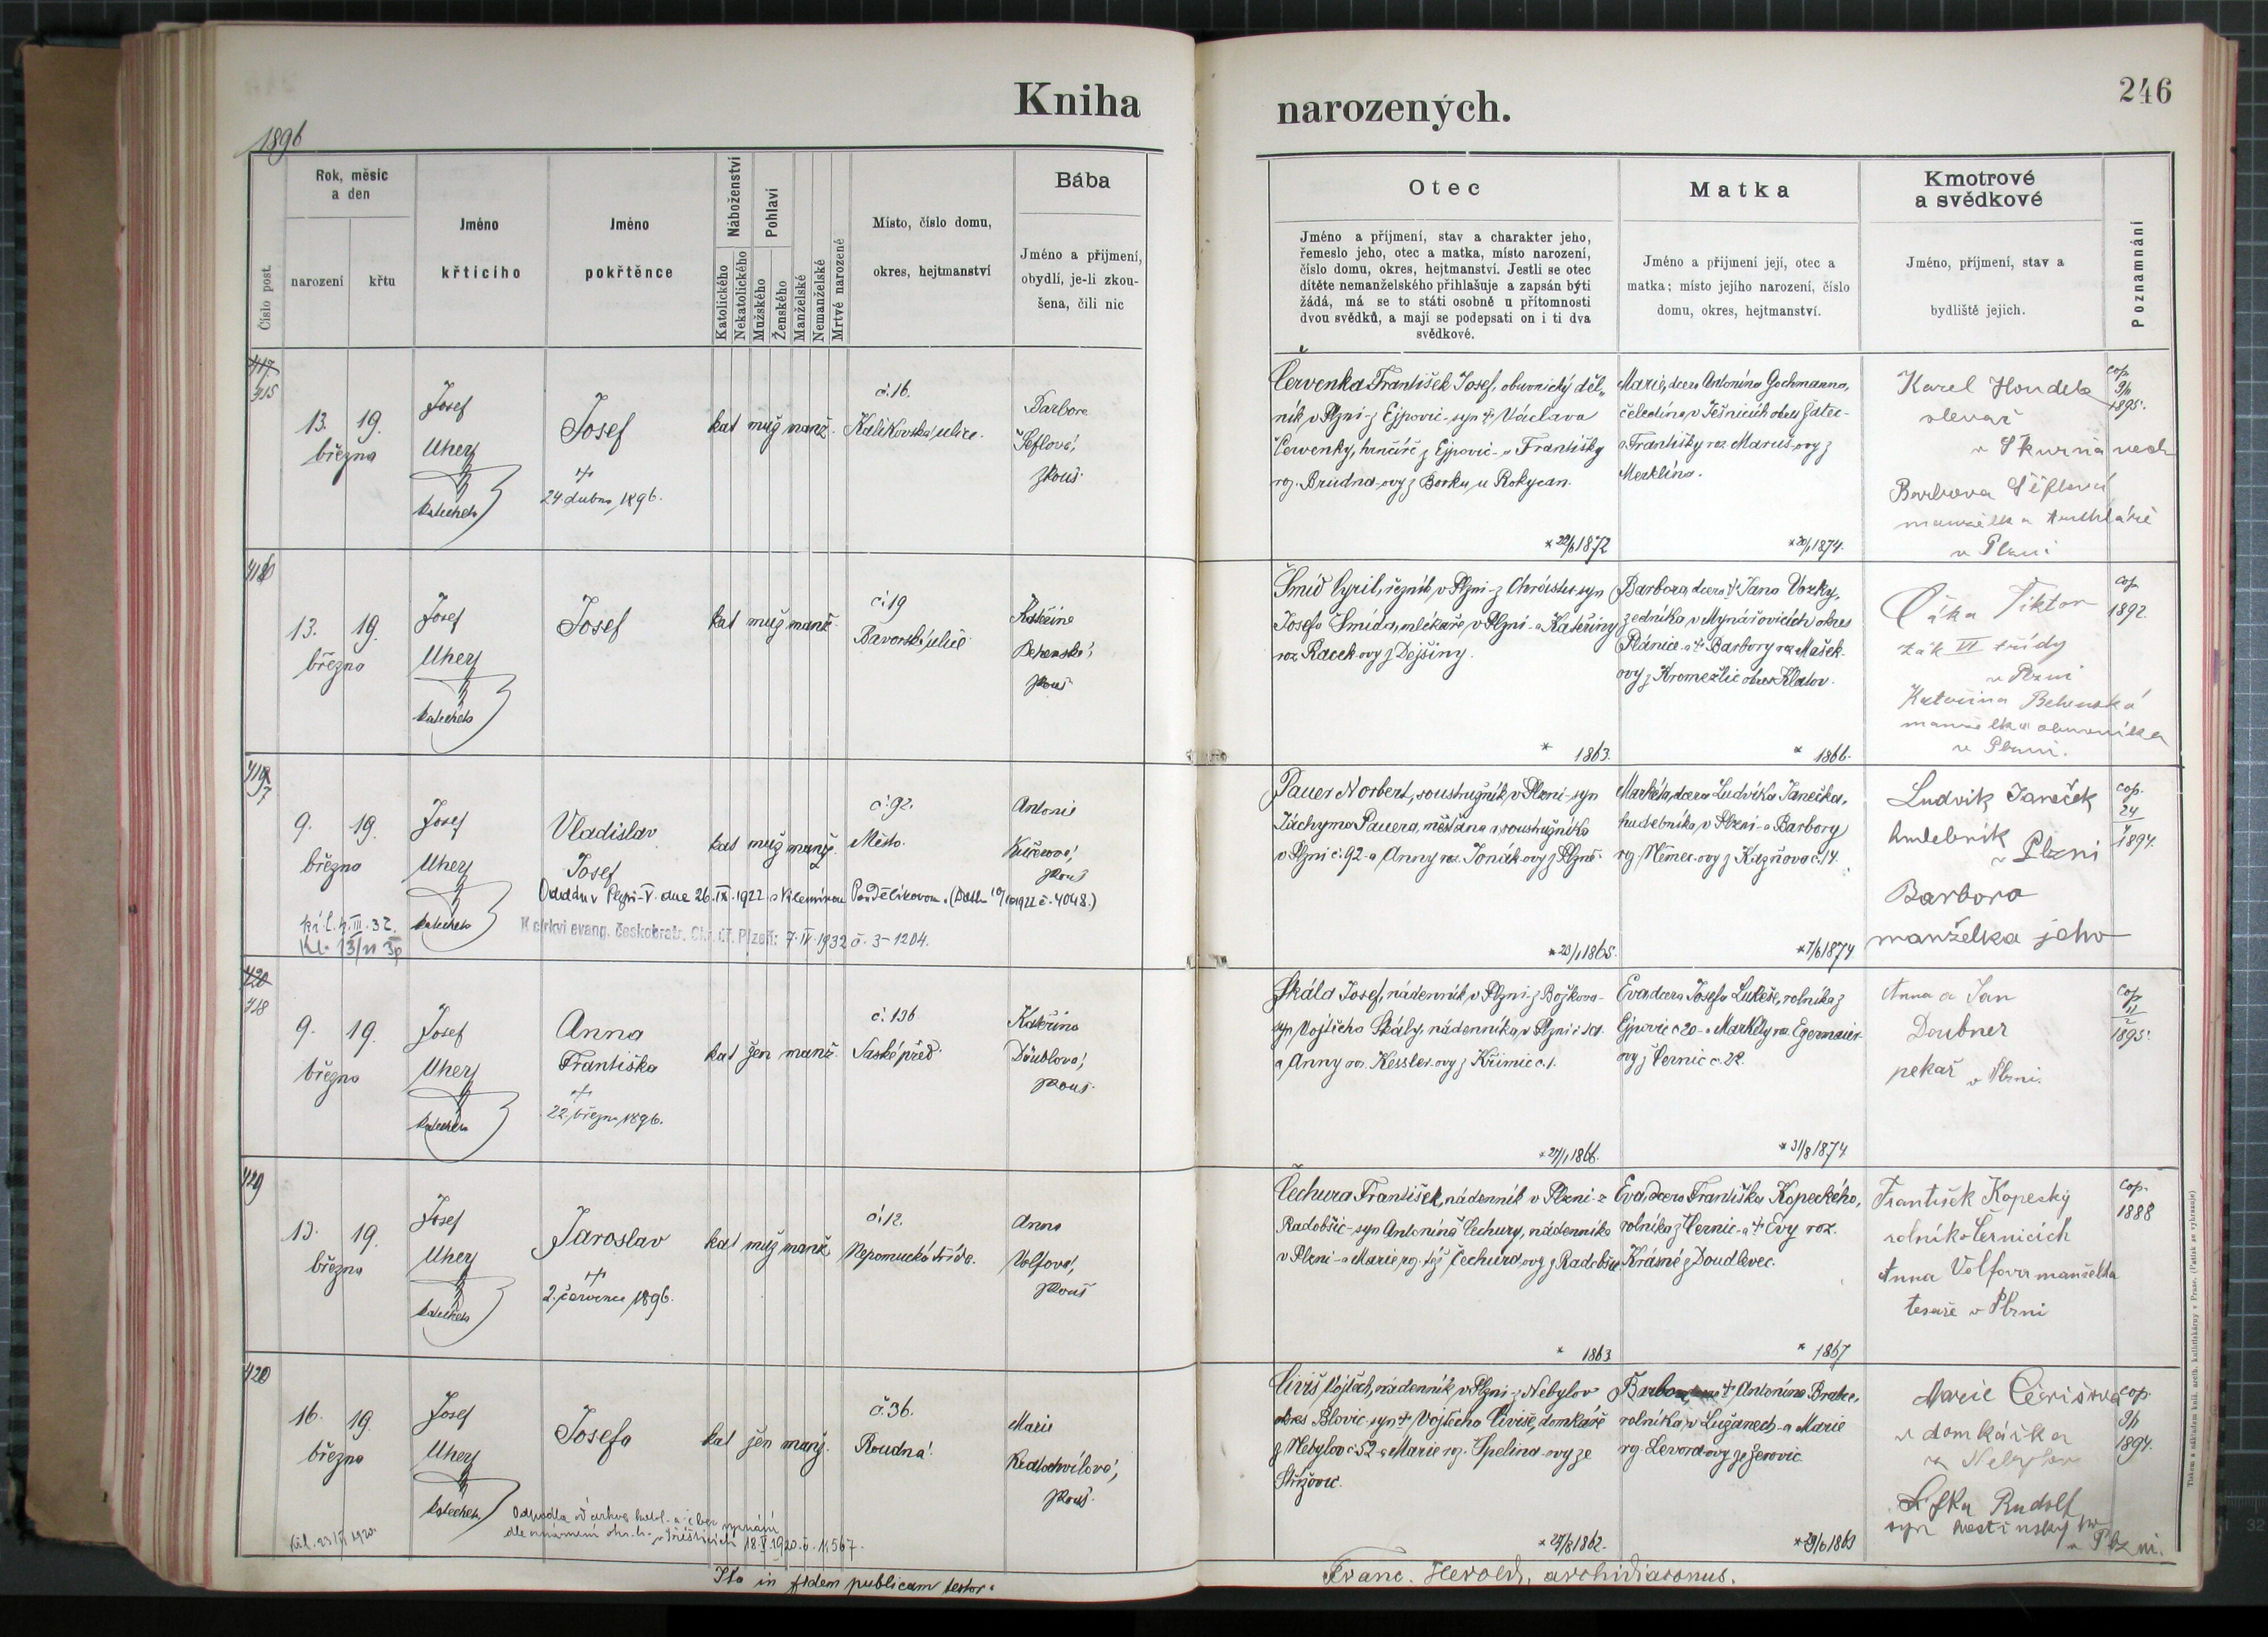 Kniha
narozených.
246
1896
Číslo post.
Rok, měsíc
a den
narození
křtu
Jméno
křticího
Jméno
pokřtěnce
Náboženství
Katolického
Nekatolického
Pohlaví
Mužského
Ženského
Manželské
Nemanželské
Mrtvě narozené
Místo, číslo domu,
okres, hejtmanství
Bába
Jméno a příjmení,
obydlí, je-li zkou-
šena, čili nic
Otec
Jméno a příjmení, stav a charakter jeho,
řemeslo jeho, otec a matka, místo narození,
číslo domu, okres, hejtmanství. Jestli se otec
dítěte nemanželského přihlašuje a zapsán býti
žádá, má se to státi osobně u přítomnosti
dvou svědků, a mají se podepsati on i ti dva
svědkové.
Matka
Jméno a příjmení její, otec a
matka; místo jejího narození, číslo
domu, okres, hejtmanství.
Kmotrové
a svědkové
Jméno, příjmení, stav a
bydliště jejich.
Poznamnání
417
415
13. 19.
března
Josef
Uherz
katecheta
Josef
24 dubna 1896.
kat muž manž.
č. 16.
Kalikovská ulice.
Barbora
Šeflová,
zkouš.
Červenka František Josef, obuvnický děl-
ník v Plzni z Ejpovic - syn † Václava
Červenky, hrnčíře z Ejpovic - a Františky
roz. Brudna-ovy z Borku u Rokycan.
*22/6 1872
Marie, dcera Antonína Gochmanna,
čeledína v Ješnicích okres Žatec -
a Františky roz. Maruš-ovy z
Merklína.
*20/1 1874.
Karel Houdek
slevač
v Skurňanech
Barbora Šeflová
manželka truhláře
v Plzni
cop.
9/11
1895.
416
13. 19.
března
Josef
Uherz
katecheta
Josef
kat muž manž.
č. 19
Bavorská ulice
Kateřina
Behenská,
zkouš
Šmíd Cyril, řezník v Plzni z Chrástu syn
Josefa Šmída, mlékaře v Plzni - a Kateřiny
roz. Racek-ovy z Dejšiny.
* 1863.
Barbora, dcera † Jana Vozky,
zedníka v Mynářovicích okres
Plánice - a † Barbory roz. Mašek-
ovy z Kroměžlic okres Klatov.
* 1866.
Viktor
žák VI třídy
v Plzni
Kateřina Behenská
manželka obuvníka
v Plzni.
cop
1892.
417
9. 19.
března
Josef
Uherz
katecheta
Vladislav
Josef
kat muž manž.
č. 92.
Město.
Antonie
Kučerová,
zkouš
Oddán v Plzni-V. dne 26.IX.1922 s Vilemínou
K církvi evang. českobratr. Okr. úř. Plzeň: 7.IV.1932 č. 3-1204.
Pauer Norbert, soustružník v Plzni - syn
Jáchyma Pauera, měšťana a soustružníka
v Plzni č. 92 - a Anny roz. Jonák-ovy z Plzně.
*23/1 1865.
Markéta, dcera Ludvíka Janečka,
hudebníka v Plzni - a Barbory
roz. Němec-ovy z Kazňova č. 14.
*7/6 1874
Ludvík Janeček
hudebník
v Plzni
Barbora
manželka jeho
cop.
24
1894.
420
418
9. 19.
března
Josef
Uherz
katecheta
Anna
Františka
22. března 1896.
kat žen manž.
č. 136
Saské před.
Kateřina
Däublová,
zkouš.
Skála Josef, nádenník v Plzni z Božkova -
syn Vojtěcha Skály, nádenníka v Plzni
a Anny roz. Kessler-ovy z Křimic č. 1.
*27/1 1866.
Eva dcera Josefa Lukeše, rolníka z
Ejpovic č. 20 - a Markéty roz. Egermaier-
ovy z Černic č. 22.
*31/8 1874
Anna a Jan
Doubner
pekař v Plzni.
cop.
1895.
419
13. 19.
března
Josef
Uherz
katecheta
Jaroslav
2. července 1896.
kat muž manž.
č. 12.
Nepomucká třída.
Anna
Volfová,
zkouš
Čechura František, nádenník v Plzni z
Radobčic - syn Antonína Čechury, nádenníka
v Plzni - a Marie roz. též Čechura-ovy z Radobčic.
* 1863
Eva dcera Františka Kopeckého,
rolníka z Černic - a † Evy roz.
Krásné z Doudlevec.
* 1867
František Kopecký
rolník v Černicích
Anna Volfova manželka
tesaře v Plzni
cop.
1888
420
16. 19.
března
Josef
Uherz
katecheta
Josefa
kat žen manž.
č. 36.
Roudná.
Marie
Kratochvílová,
zkouš.
Odpadla od církve katol. a je bez vyznání
18.V.1920 č. 11567.
Cíviš Vojtěch, nádenník v Plzni z Nebylov
okres Blovic syn † Vojtěcha Cíviše, domkáře
z Nebylov č. 52 a Marie roz. Spelina-ovy ze
Střížovic.
*27/8 1862.
Barbora, dcera † Antonína Brabce,
rolníka v Lužanech - a Marie
roz. Levora-ovy ze Žerovic.
Marie Civišova
domkářka
z Nebylov
Rudolf
syn hostinský
v Plzni.
cop.
9/2
1894.
Ita in fidem publicam testor:
Franc. Herold, archidiaconus.